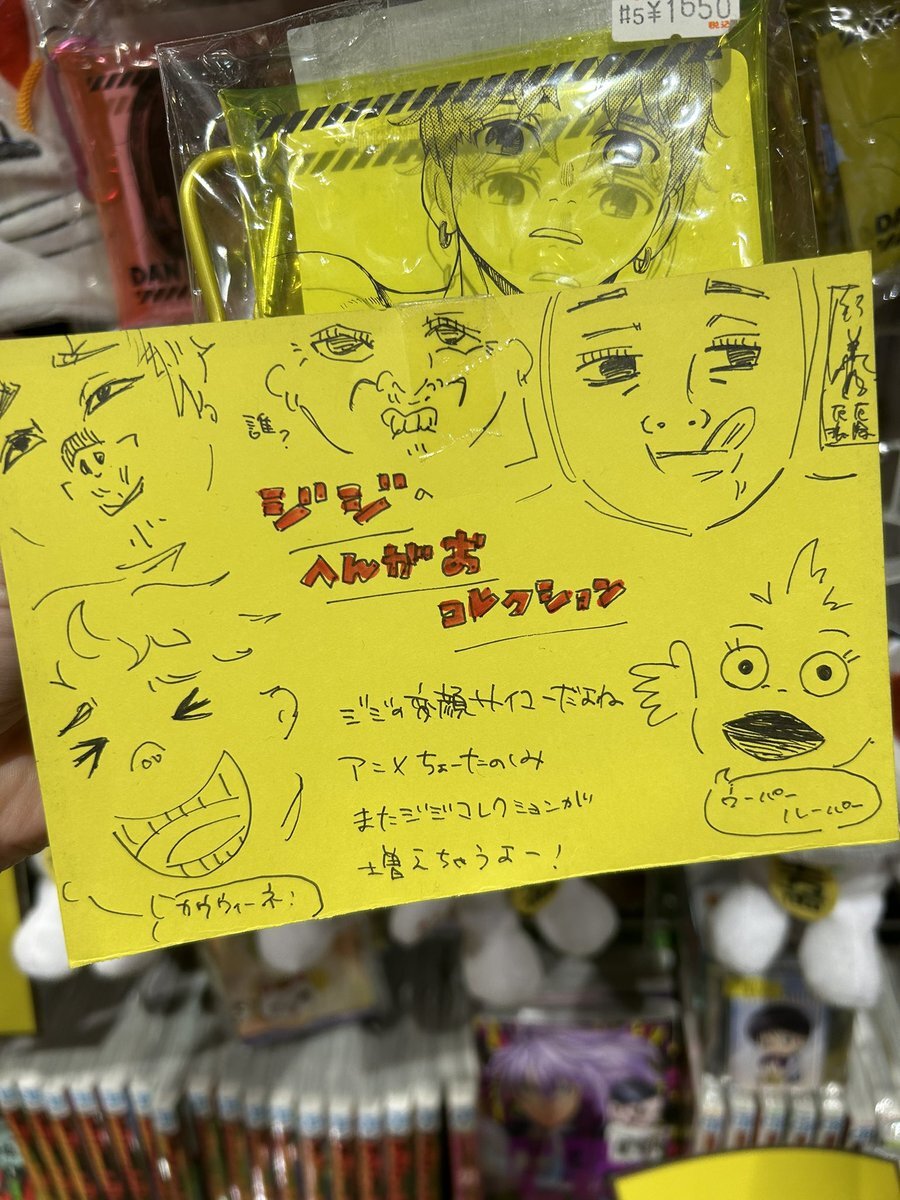 #5¥1650
税込
DAN
誰?
ジジの
へんがお
コレクション
ジジの変顔サイコーだよね
アニメちょーたのしみ
またジジコレクションが
増えちゃうよー!
ウーパー
ルーパー
カウウィーネ!